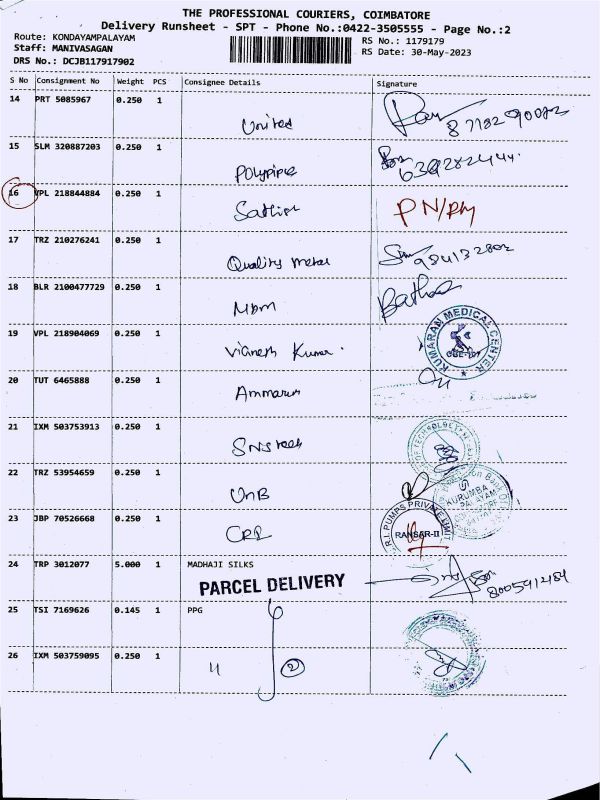 THE PROFESSIONAL COURIERS, COIMBATORE
Delivery Runsheet - SPT - Phone No.:0422-3505555 - Page No.:2
Route: KONDAYAMPALAYAM
RS No.: 1179179
Staff: MANIVASAGAN
RS Date: 30-May-2023
DRS No.: DCJB117917902
S No Consignment No Weight PCS Consignee Details Signature
14 PRT 5085967 0.250 1
United
15 SLM 320887203 0.250 1
Polypipe
16 VPL 218844884 0.250 1
Sathish PN/RM
17 TRZ 210276241 0.250 1
Quality metal
18 BLR 2100477729 0.250 1
MDM
19 VPL 218904069 0.250 1
KUMARAN MEDICAL CENTER
CBE-107
Vignesh Kumar.
20 TUT 6465888 0.250 1
Ammarun
21 IXM 503753913 0.250 1
SNS tech
22 TRZ 53954659 0.250 1
UnB
KURUMBA
PALAYAM
23 JBP 70526668 0.250 1
R.I. PUMPS PRIVATE LIMIT
RANSAR-II
CRI
24 TRP 3012077 5.000 1 MADHAJI SILKS
PARCEL DELIVERY
25 TSI 7169626 0.145 1 PPG
26 IXM 503759095 0.250 1
4 2